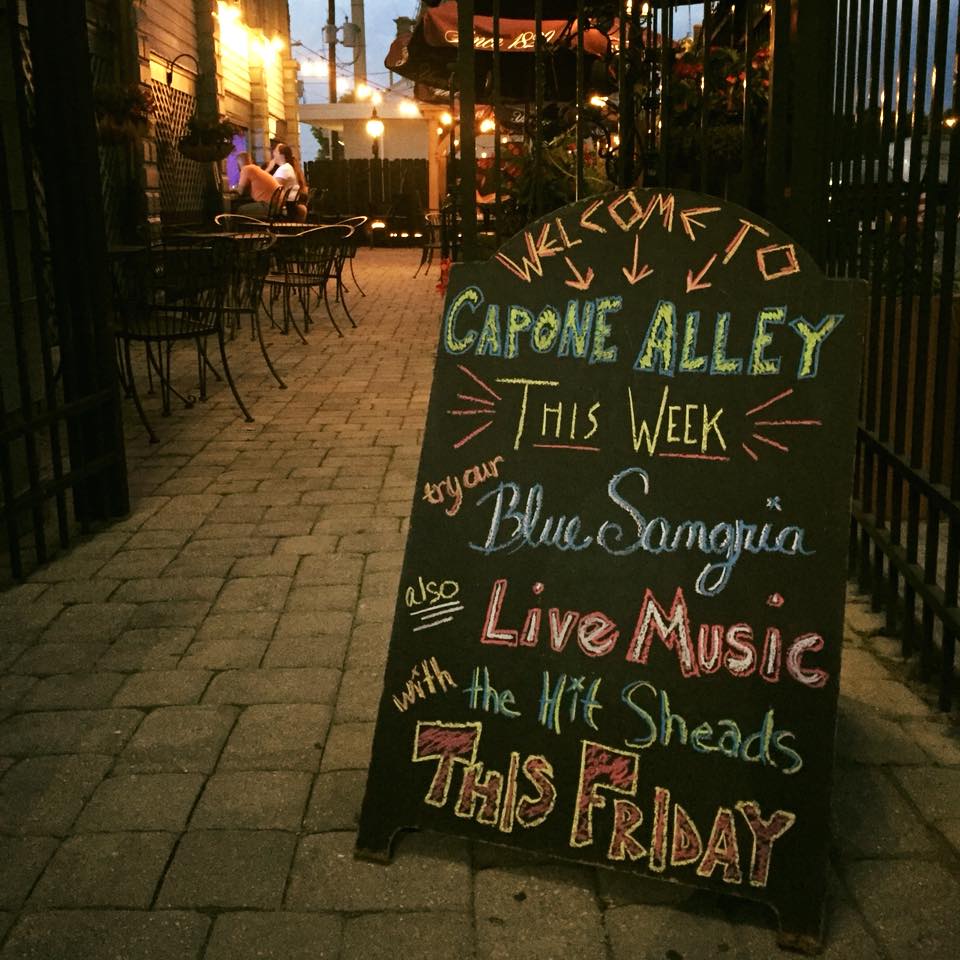 Since 1829
WELCOME TO
CAPONE ALLEY
THIS WEEK
try our
Blue Sangria
also
Live Music
with the Hit Sheads
THIS FRIDAY